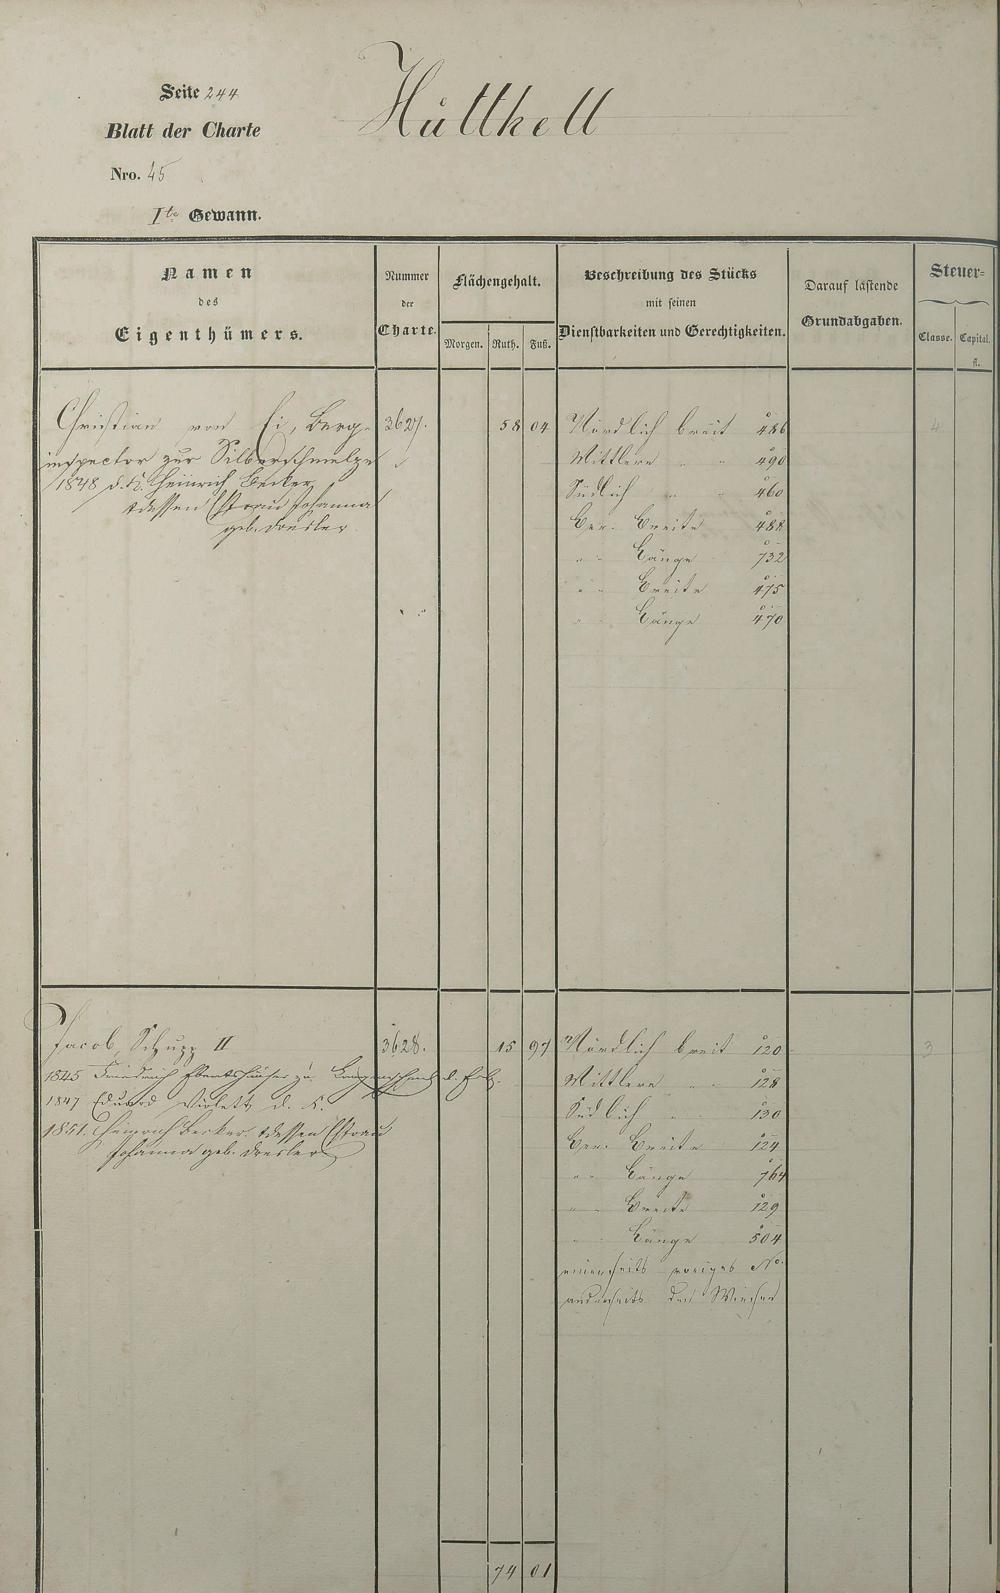 Seite 244
Hüttkell
Blatt der Charte
Nro. 45
Ite Gewann.
Namen
des
Eigenthümers.
Nummer
der
Charte.
Flächengehalt.
Morgen. Ruth. Fuß.
Beschreibung des Stücks
mit seinen
Dienstbarkeiten und Gerechtigkeiten.
Darauf lastende
Grundabgaben.
Steuer=
Classe. Capital.
fl.
Christian von Ei, Berg- 3627. 58 04 Nördlich breit 486 4
inspector zur Silberschmelze Mittlere " " 490
1848 d. K. Heinrich Becker Südlich " " 460
& dessen Ehefrau Johanna Ber. Breite 488
geb. Dresler " " Länge 732
" " Breite 475
" " Länge 470
Jacob Schupp II 3628. 15 97 Nördlich breit 120 3
1845 Friedrich zu d. Mittlere " " 128
1847 Eduard Violett d. K. Südlich " " 130
1851. Heinrich Becker & dessen Ehefrau Ber. Breite 124
Johanna geb. Dresler " " Länge 764
" " Breite 129
" " Länge 504
einerseits voriges No.
anderseits der Weiher
74 01